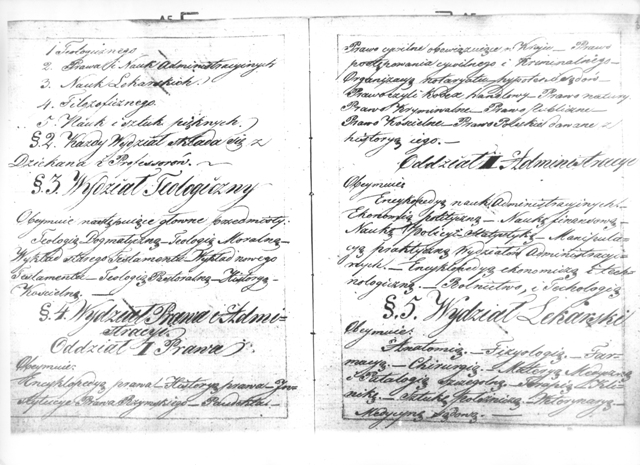 1 Teologicznego
2. Prawa i Nauk Administracyinych
3. Nauk Lekarskich.
4. Filozoficznego.
5. Nauk i sztuk pięknych.
§. 2. Każdy Wydział składa się z
Dziekana i Professorów.
§. 3. Wydział Teologiczny
Obeymuie następuiące główne przedmioty.
Teologią Dogmatyczną — Teologią Moralną —
Wykład starego Testamentu — Wykład nowego
Testamentu — Teologią Pastoralną — Historyą
Kościelną. —
§. 4. Wydział Prawa i Admi-
nistracyi
Oddział I Prawa
Obeymuie:
Encyklopedyą prawa — Historyą prawa —
Prawa Rzymskiego —
Prawo cywilne obowiązuiące w Kraiu — Prawo
postępowania cywilnego i Kryminalnego —
Organizacyą notaryatu
Prawo czyli kodex handlowy — Prawo natury
Prawo Kryminalne — Prawo Publiczne —
Prawo Kościelne — Prawo Polskie dawne z
historyą iego. —
Oddział II Administracyi
Obeymuie:
Encyklopedyą nauk Administracyinych —
Ekonomią polityczną — Naukę finansową —
Naukę Policyi — Statystykę — Manipula-
cyą praktyczną Wydziałów Administracyi-
nych. — Encyklopedyą ekonomiczną i tech-
nologiczną. — Rolnictwo, i Technologią
§. 5. Wydział Lekarski
Obeymuie:
Anatomią. — Fizyologią — Far-
macyą — Chirurgią — Materyą Medyczną
i Patologią Szczegulną — Terapią i Kli-
nikę. — Sztukę położniczą — Weterynaryą —
Medycynę Sądową. —